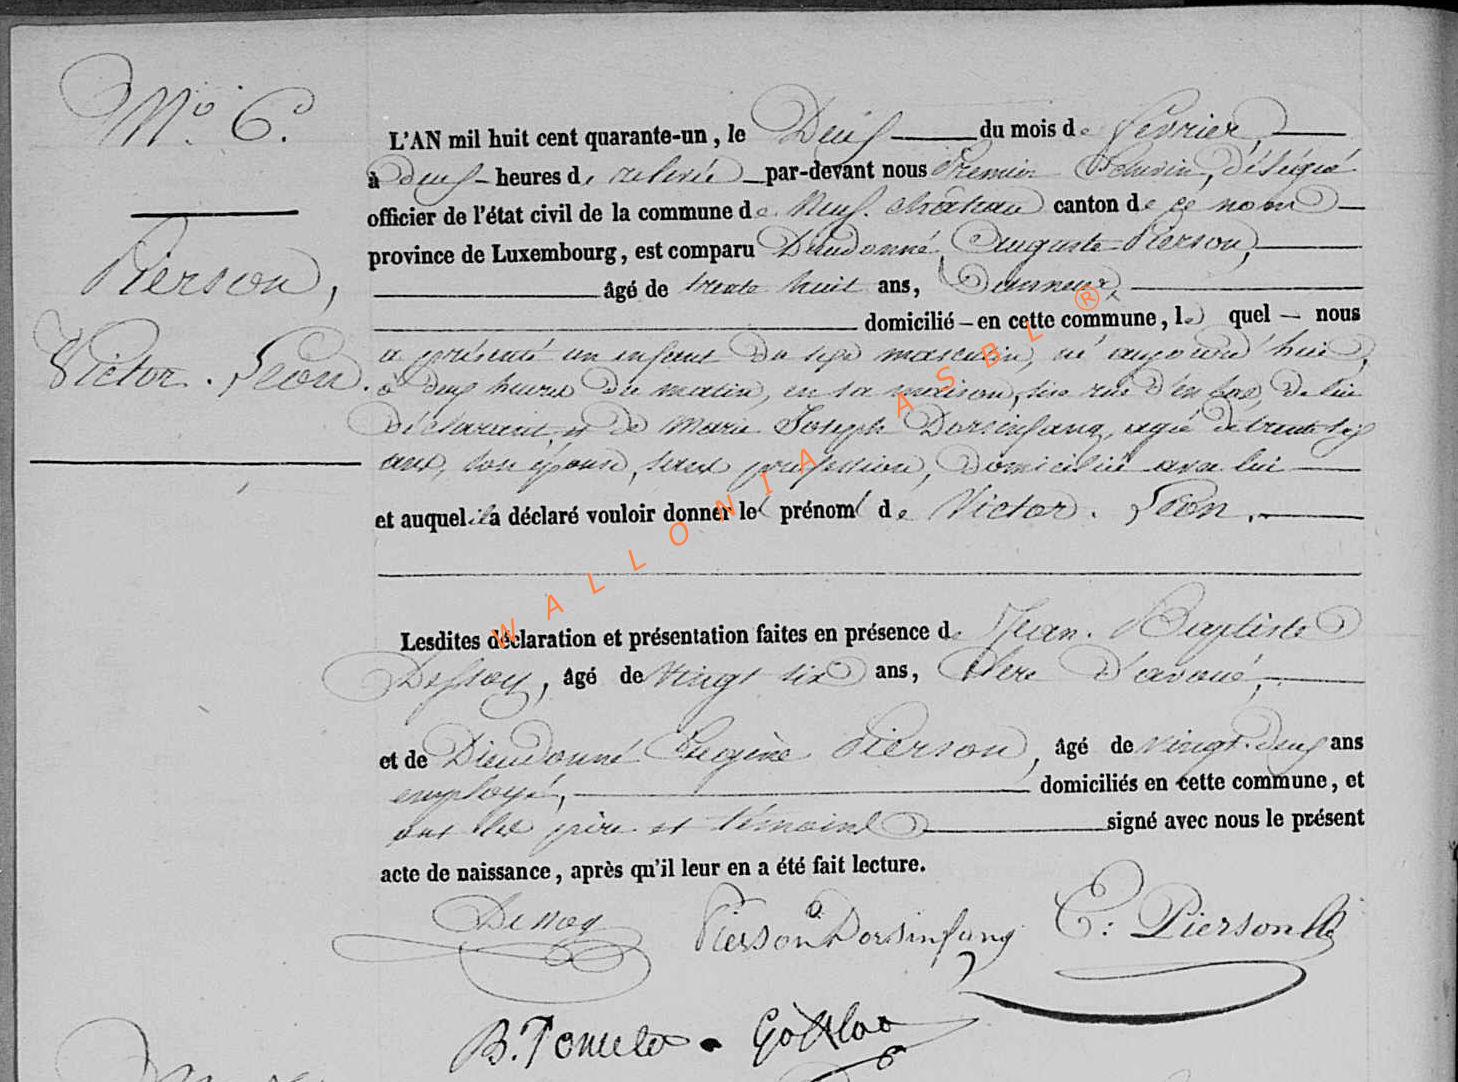 N° 6.
Pierson,
Victor. Léon.
L'AN mil huit cent quarante-un, le Deux du mois de février
à deux heures de relevée par-devant nous Premier Echevin, délégué
officier de l'état civil de la commune de Neuf. château canton de ce nom
province de Luxembourg, est comparu Dieudonné Auguste Pierson,
âgé de trente huit ans, Tanneur,
domicilié en cette commune, le quel nous
a présenté un enfant du sexe masculin, né aujourd'hui,
à deux heures du matin, en sa maison, sise rue d'en bas, de lui
déclarant, et de Marie Joseph Dorsinfang, agée de trente six
ans, son épouse, sans profession, domiciliée avec lui
et auquel il a déclaré vouloir donner les prénoms de Victor. Léon.
Lesdites déclaration et présentation faites en présence de Jean. Baptiste
Dessoy, âgé de vingt six ans, Clerc d'avoué,
et de Dieudonné Eugène Pierson, âgé de vingt. deux ans
employé, domiciliés en cette commune, et
ont les père et témoins signé avec nous le présent
acte de naissance, après qu'il leur en a été fait lecture.
Dessoy Pierson Dorsinfang E: Pierson
WALLONIA ASBL ®